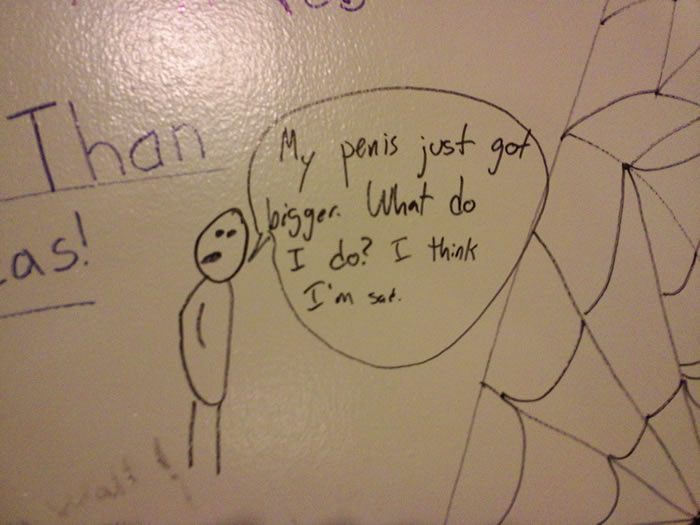 Than
as!
My penis just got
bigger. What do
I do? I think
I'm sad.
wait!